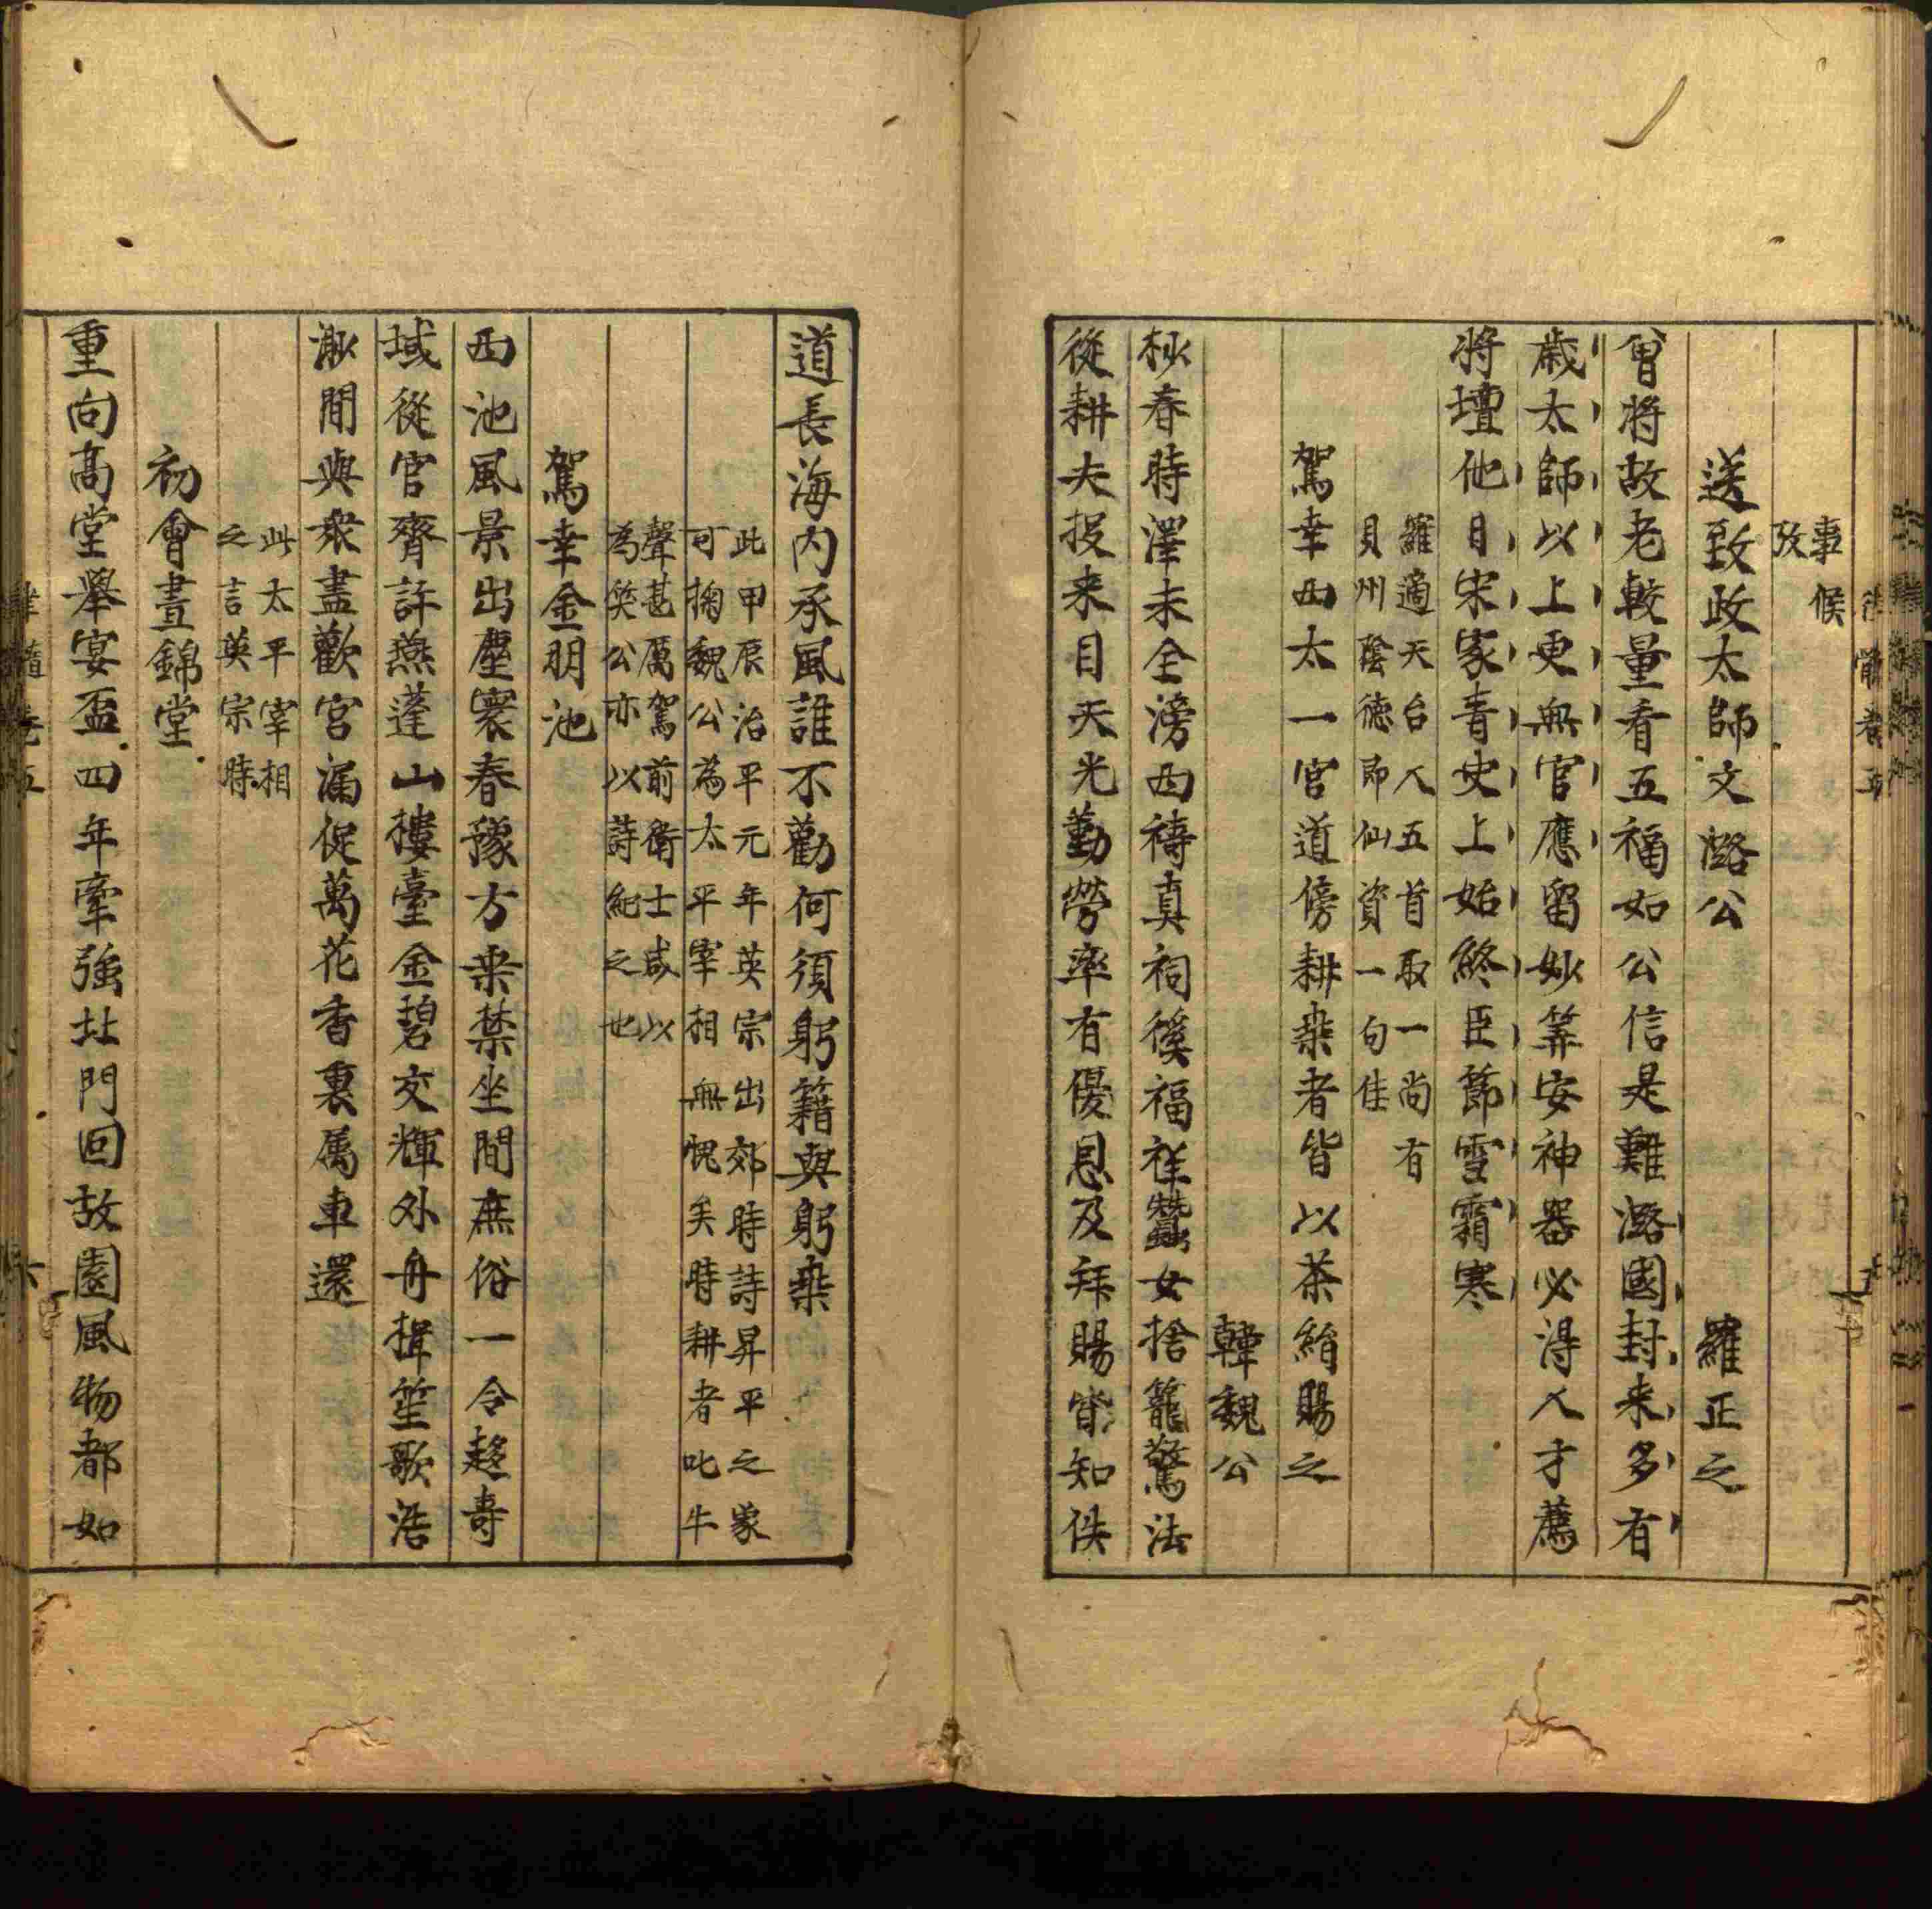 事候
攷
送致政太師文潞公 羅正之
曾將故老較量看五福如公信是難潞國封来多有
歳太師以上更無官應留妙筭安神器必得人才薦
将壇他日宋家青史上始終臣節雪霜寒
羅適天台人五首取一尚有
貝州陰徳即仙資一句佳
駕幸西太一宮道傍耕桒者皆以茶絹賜之
韓魏公
秋春時澤未全滂西禱真祠徯福祥蠶女捨籠驚法
從耕夫投来目天光勤勞率有優恩及拜賜皆知佚
道長海内承風誰不勸何須躬籍與躬桒
此甲辰治平元年英宗出郊時詩昇平之象
可掬魏公為太平宰相無愧矣時耕者叱牛
聲甚厲駕前衛士咸以
為笑公亦以詩紀之也
駕幸金明池
西池風景出塵寰春豫方来禁坐間庶俗一令趍壽
域從官齊許燕蓬山樓臺金碧交輝外舟楫笙歌浩
渺間與衆盡歡宮漏促萬花香裏属車還
此太平宰相
之言英宗時
初會晝錦堂
重向高堂舉宴盃四年牽強北門回故園風物都如